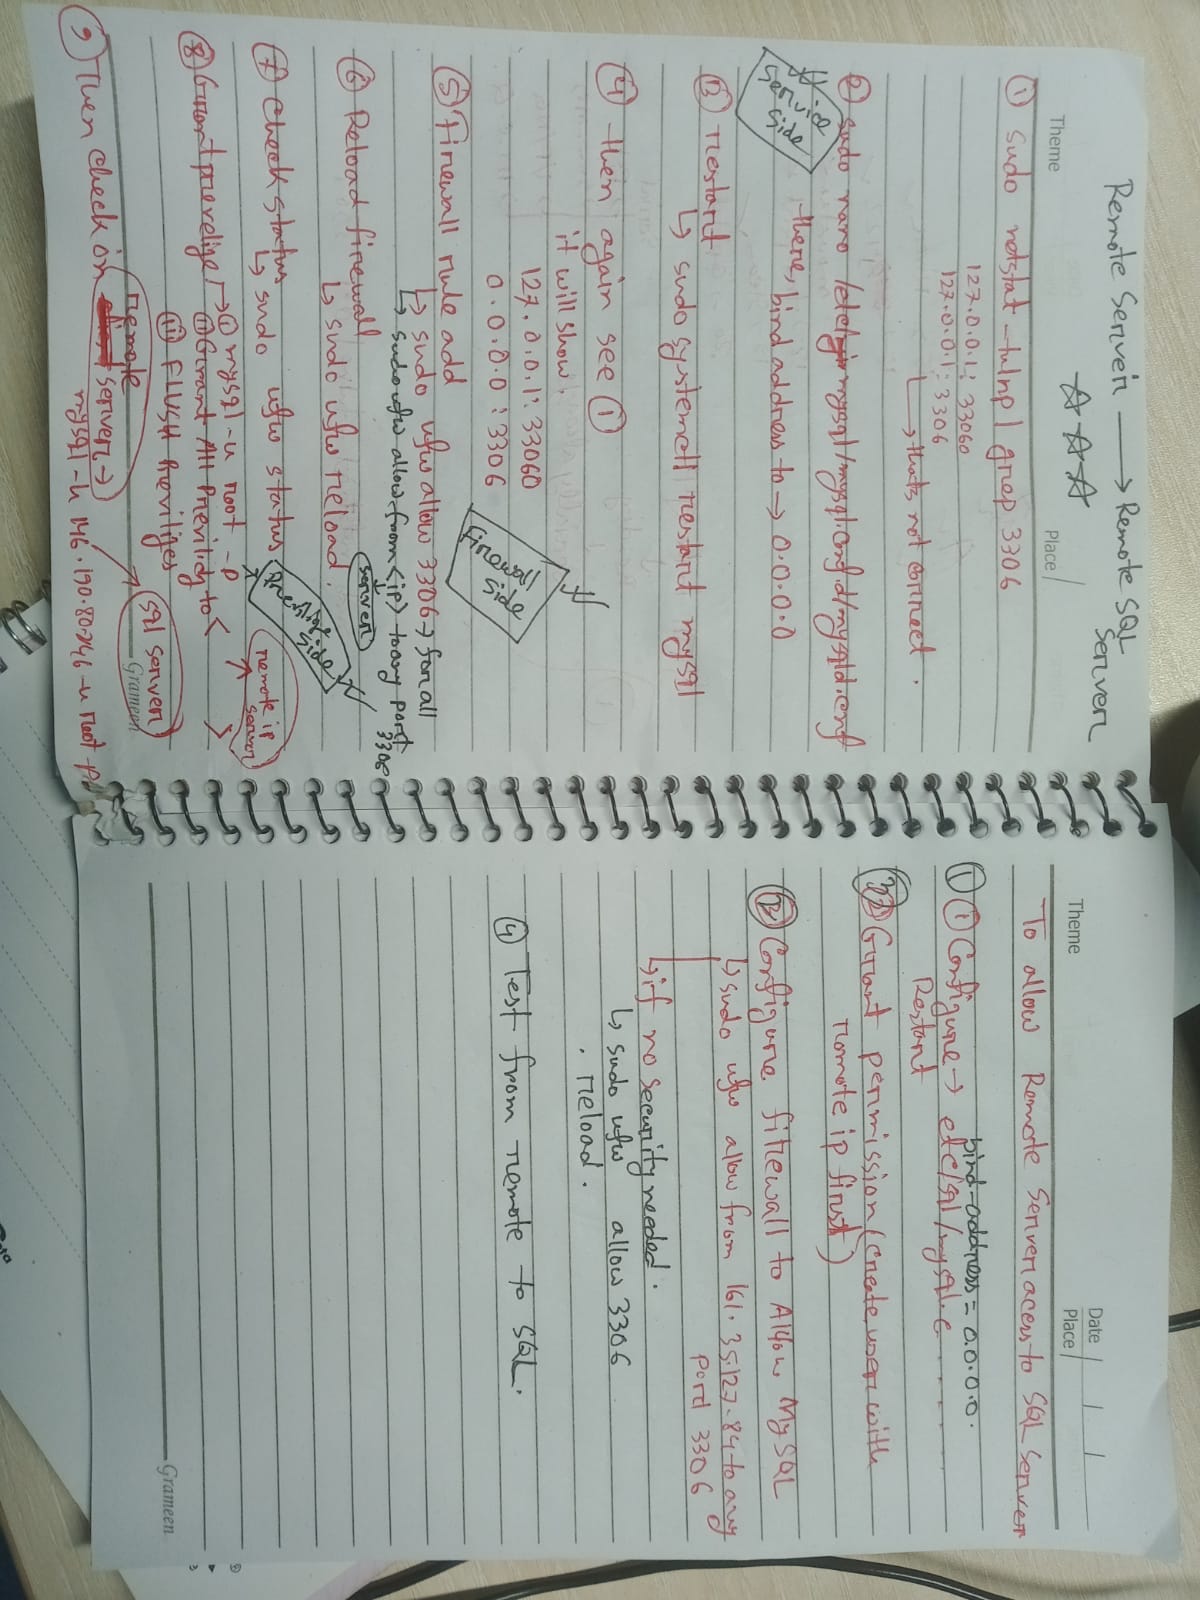 Remote Server → Remote SQL
Server
☆ ☆ ☆
Theme
Place
① sudo netstat -tulnp | grep 3306
127.0.0.1:33060
127.0.0.1:3306
↳ thats not connect.
② sudo nano /etc/mysql/mysql.conf.d/mysqld.cnf
there, bind address to → 0.0.0.0
service
side
③ restart
↳ sudo systemctl restart mysql
④ then again see ①
it will show,
127.0.0.1:33060
0.0.0.0:3306
firewall
side
⑤ firewall rule add
↳ sudo ufw allow 3306 → for all
↳ sudo ufw allow from <ip> to any port
3306
server
⑥ Reload firewall
↳ sudo ufw reload.
⑦ check status
↳ sudo ufw status
side
⑧ Grant previlige → ① mysql -u root -p
⑪ Grant All Previlidg to < >
remote ip
server
⑪i FLUSH Previliges
⑨ Then check on remote server →
sql server
mysql -u 146.190.80.246 -u root -p
Grameen
Theme
Date
Place
To allow Remote Server acess to SQL Server
① ① Configure → etc/sql/mysql.c - - - -
bind-address = 0.0.0.0.
Restart
② Grant permission (create user with
remote ip first)
③ Configure firewall to Allow MySQL
↳ sudo ufw allow from 161.35.127.84 to any
port 3306
↳ if no security needed.
↳ sudo ufw allow 3306
. reload.
④ Test from remote to SQL.
Grameen